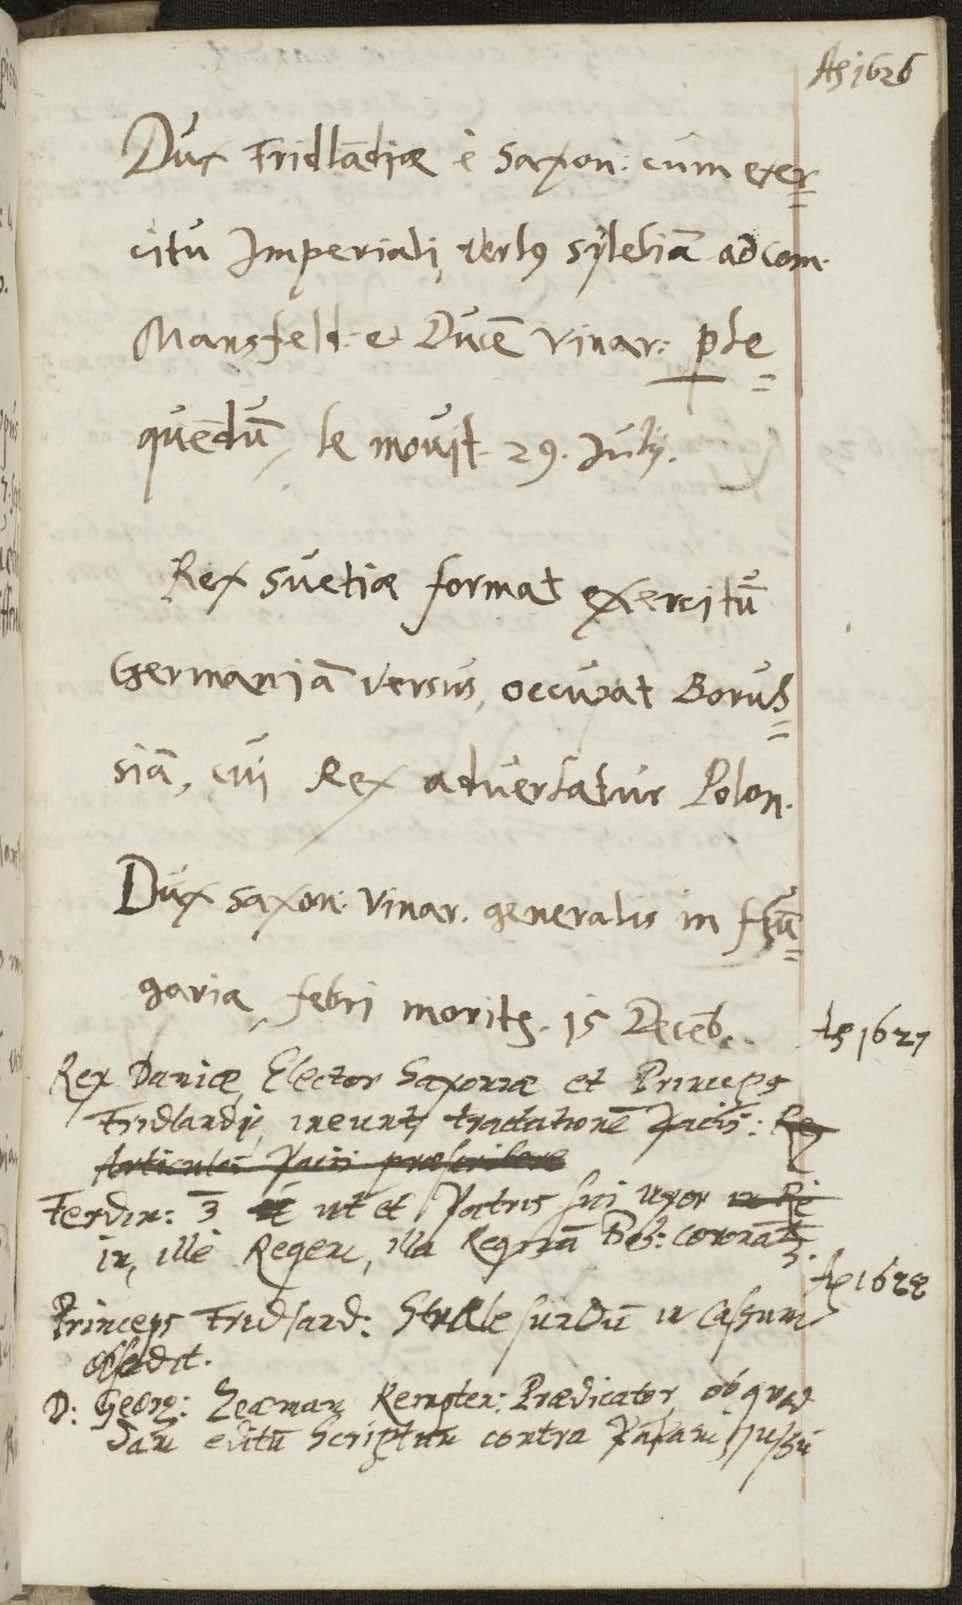 Aº 1626
Dux Fridlādiæ è Saxon: cum exer
citu Imperiali, versꝰ Sylesiā ad com.
Mansfeld: et Ducē Vinar: pse
quēdū, se movit 29. Julij.
Rex Suetiæ format exercitū
Germaniā versus, occupat Borus
siā, cui Rex adversatur Polon.
Dux Saxon: Vinar. generalis in Hū
garia, febri moritꝛ. 15 Decēb.
Aº 1627
Rex Daniæ, Elector Saxoniæ et Princeps
Fridlandiæ, ineunt tractationē Pacis: Re
Articulos Pacis præscribere
Ferdin: 3 ut et Patris sui uxor in Re
in, ille Regem, illa Reginā Boh: coronātꝛ.
Aº 1628
Princeps Fridland: Stralsundū in cassum
obsedit.
D: Georg: Zeaman Kempten: Prædicator, ob quod
dam editū Scriptum contra Papam, jussu